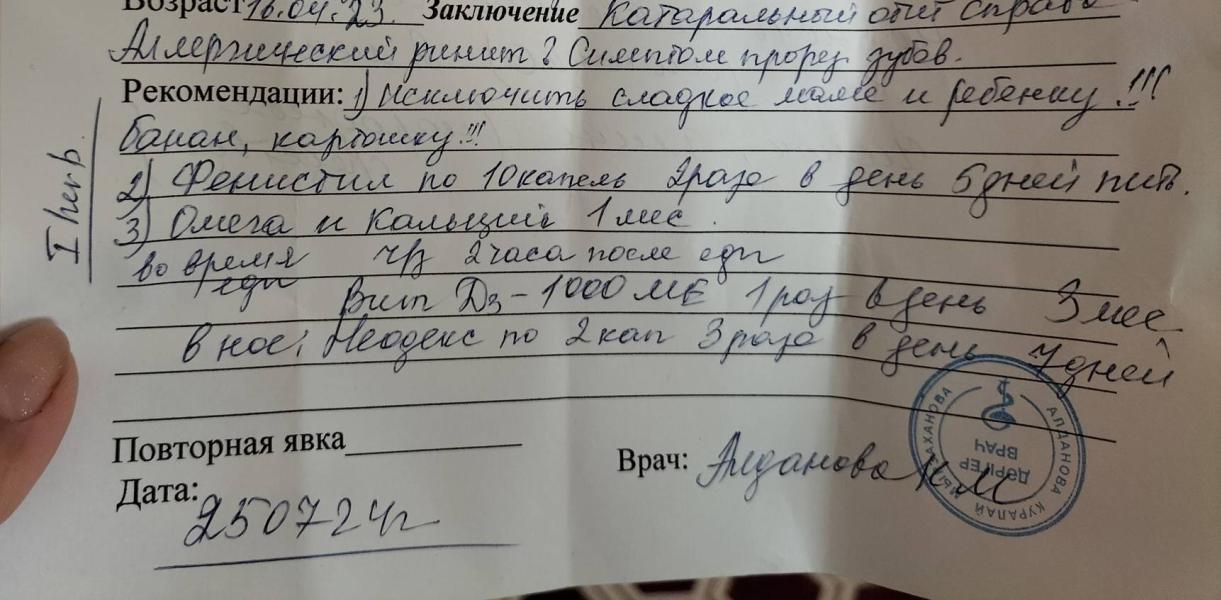 Возраст 16.04.23. Заключение Катаральный отит справа
Аллергический ринит? Симптом прорез зубов.
Рекомендации: 1) Исключить сладкое маме и ребенку!!!
банан, картошку!!!
2) Фенистил по 10 капель 2 раза в день 5 дней пить.
3) Омега и Кальций 1 мес.
во время чз 2 часа после еды
еды
Вит Д3 - 1000 МЕ 1 раз в день 3 мес
в нос: Неодекс по 2 кап 3 раза в день 7 дней
I herb
Повторная явка
Врач: Алданова К М
Дата:
250724г
АЛДАНОВА КУРАЛАЙ
ДӘРІГЕР
ВРАЧ